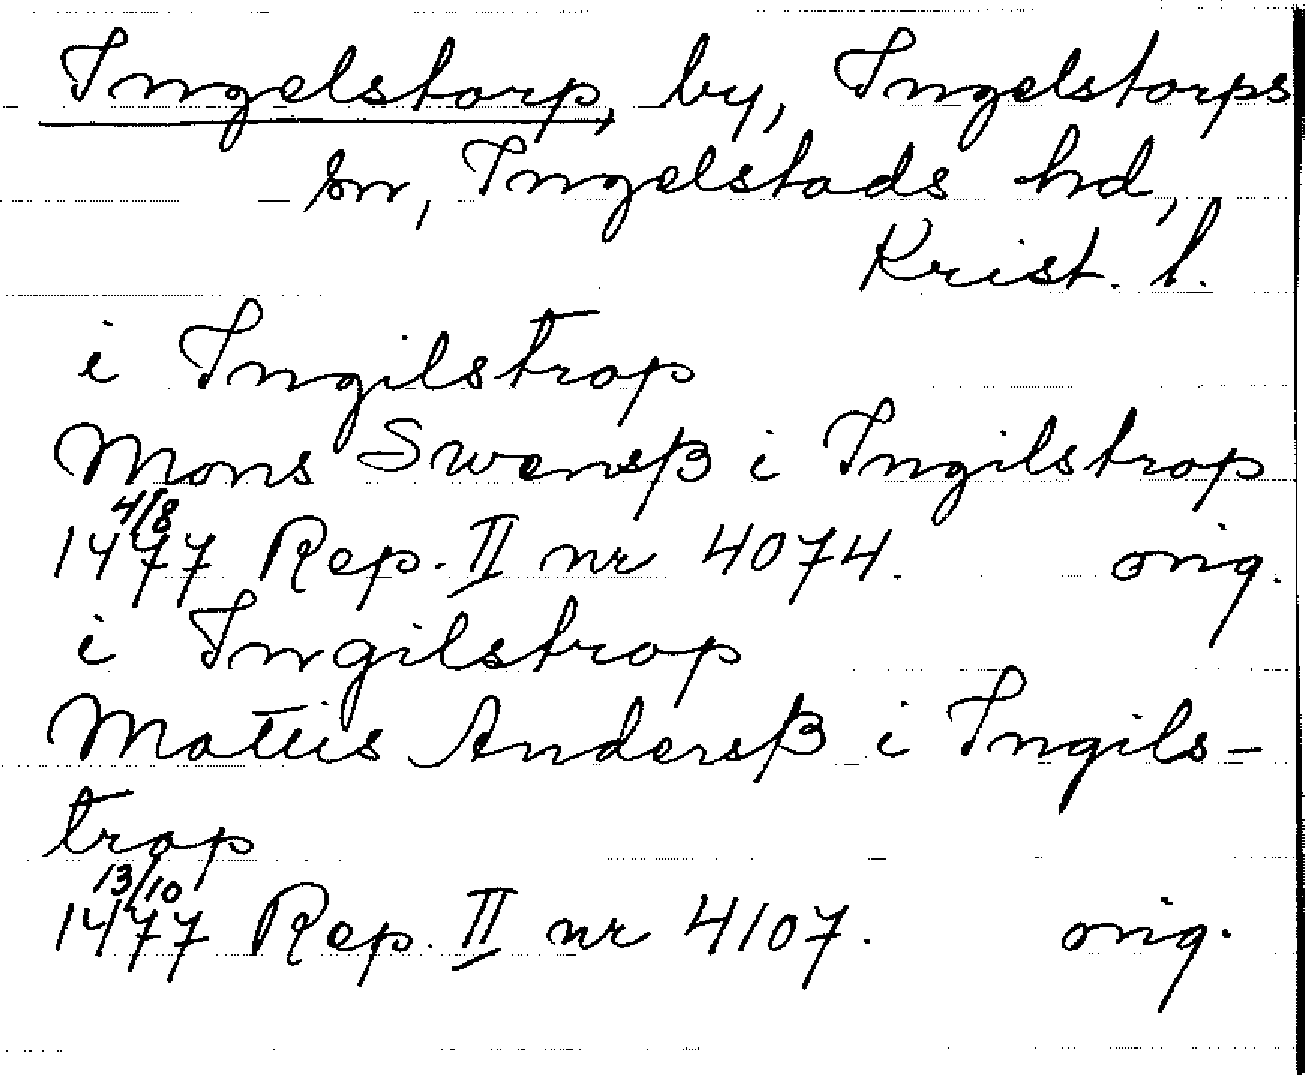 Ingelstorp, by, Ingelstorps
sn, Ingelstads hd,
Krist. l.
i Ingilstrop
Mons Swensß i Ingilstrop
4/8
1477 Rep. II nr 4074. orig.
i Ingilstrop
Matiis Andersß i Ingils-
trop
13/10
1477 Rep. II nr 4107. orig.